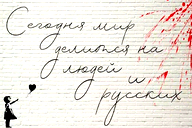 Сегодня мир
делится на
людей
и
русских